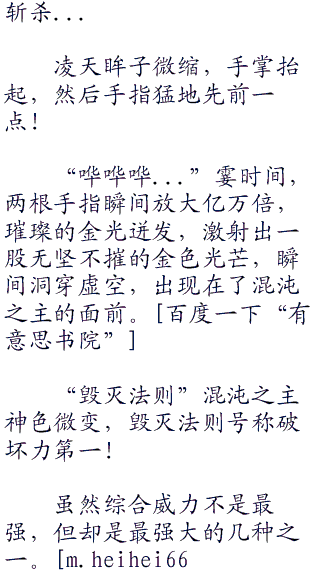 斩杀...
凌天眸子微缩，手掌抬
起，然后手指猛地先前一
点！
“哗哗哗...”霎时间，
两根手指瞬间放大亿万倍，
璀璨的金光迸发，激射出一
股无坚不摧的金色光芒，瞬
间洞穿虚空，出现在了混沌
之主的面前。[百度一下“有
意思书院”]
“毁灭法则”混沌之主
神色微变，毁灭法则号称破
坏力第一！
虽然综合威力不是最
强，但却是最强大的几种之
一。[m.heihei66